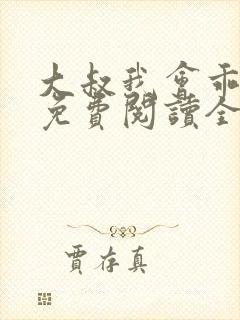 大叔我會乖
免費閱讀全
賈存真